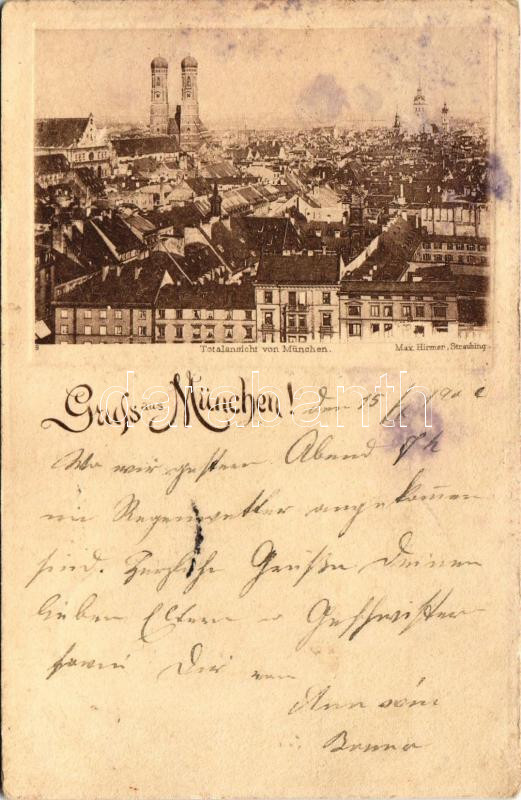 Totalansicht von München. Max Hirmer, Straubing
Gruss aus München! den 15/ 190
Wo wir gestern Abend 7 h
im Regenwetter angekommen
sind. Herzliche Grüße Deinen
lieben Eltern u Geschwister
sowie Dir von
darabanth.com